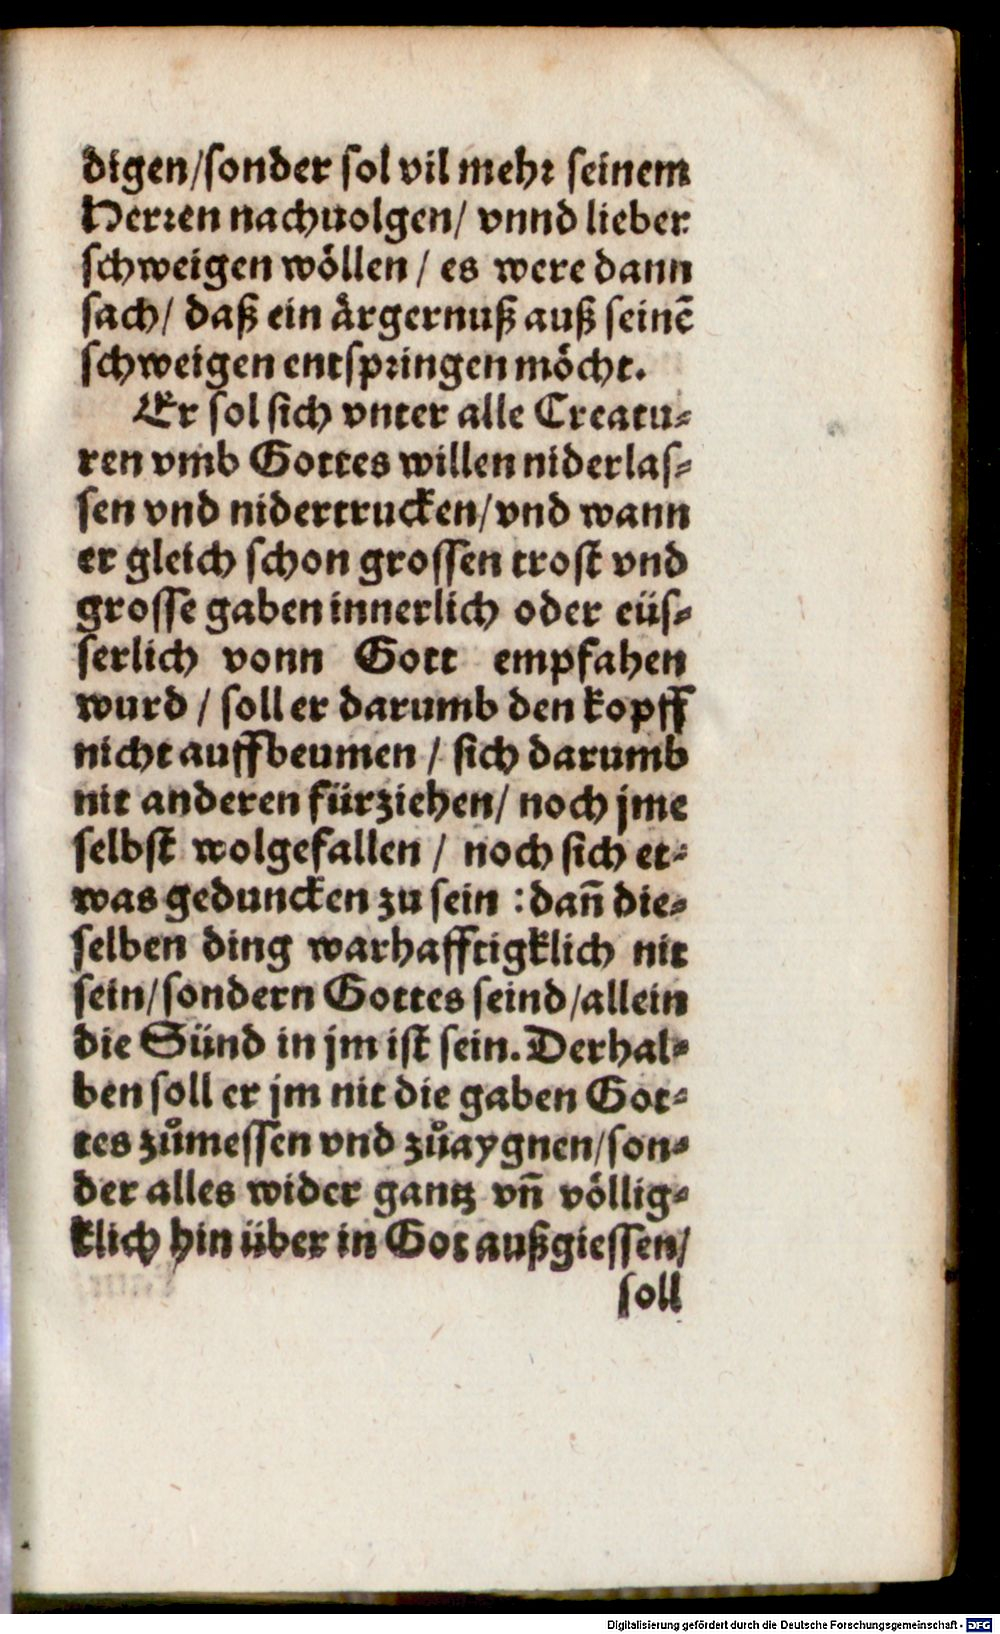 digen/sonder sol vil mehr seinem
Herren nachuolgen/ vnnd lieber
schweigen wöllen / es were dann
sach/ daß ein ärgernuß auß seinē
schweigen entspringen möcht.
Er sol sich vnter alle Creatu⸗
ren vmb Gottes willen niderlas⸗
sen vnd nidertrucken/vnd wann
er gleich schon grossen trost vnd
grosse gaben innerlich oder eüs⸗
serlich vonn Gott empfahen
wurd / soll er darumb den kopff
nicht auffbeumen / sich darumb
nit anderen fürziehen/ noch jme
selbst wolgefallen / noch sich et⸗
was geduncken zu sein : dañ die⸗
selben ding warhafftigklich nit
sein/sondern Gottes seind/allein
die Sünd in jm ist sein. Derhal⸗
ben soll er jm nit die gaben Got⸗
tes zůmessen vnd zůaygnen/son⸗
der alles wider gantz vñ völlig⸗
klich hin über in Got außgiessen/
soll
Digitalisierung gefördert durch die Deutsche Forschungsgemeinschaft - DFG